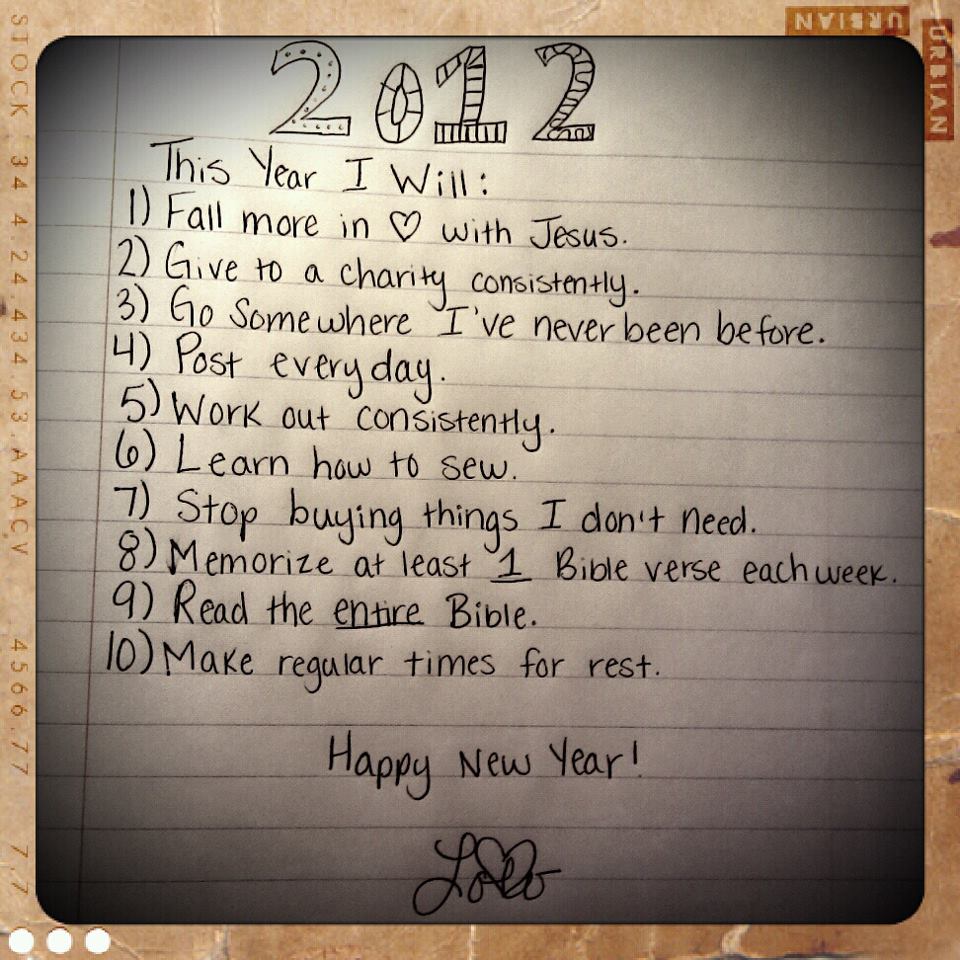 2012
This Year I Will:
1) Fall more in ♡ with Jesus.
2) Give to a charity consistently.
3) Go Somewhere I've never been before.
4) Post everyday.
5) Work out consistently.
6) Learn how to sew.
7) Stop buying things I don't need.
8) Memorize at least 1 Bible verse each week.
9) Read the entire Bible.
10) Make regular times for rest.
Happy New Year!
URBIAN
URBIAN
STOCK 34 4.24.434 53.AAACV 4566.77 7.7